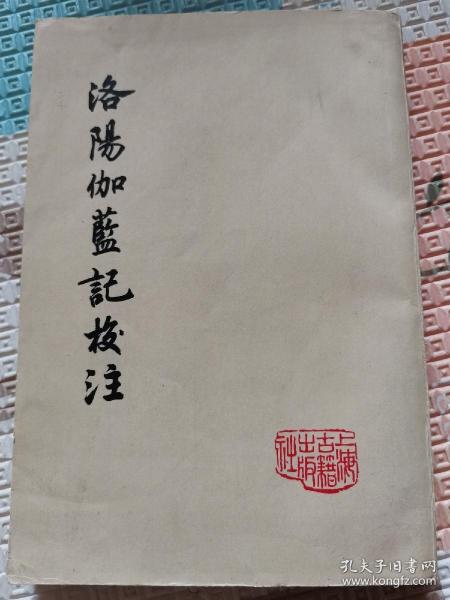 洛陽伽藍記校注
上海
古籍
出版
社
孔夫子旧书网
www.kongfz.com